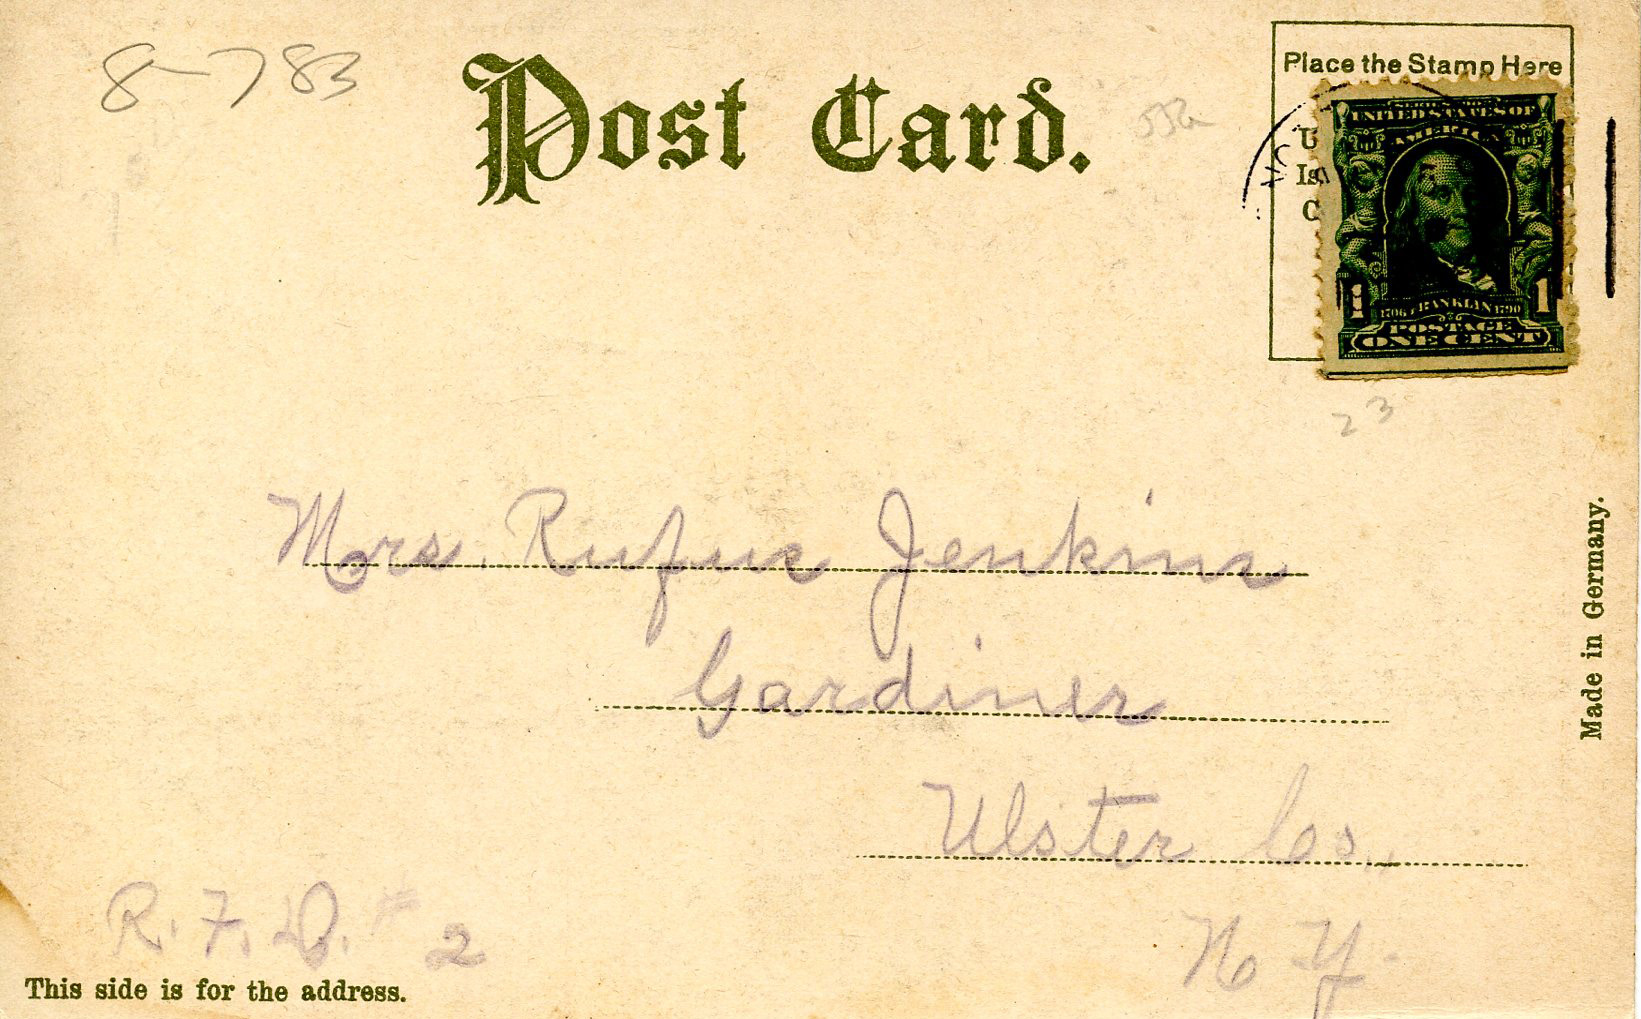 8-783
Post Card.
Place the Stamp Here
U
Is
C
UNITED STATES OF
AMERICA
1 1
1706 FRANKLIN 1790
POSTAGE
ONE CENT
23
Mrs. Rufus Jenkins
Gardiner
Ulster Co.,
N. Y.
R. F. D. # 2
This side is for the address.
Made in Germany.